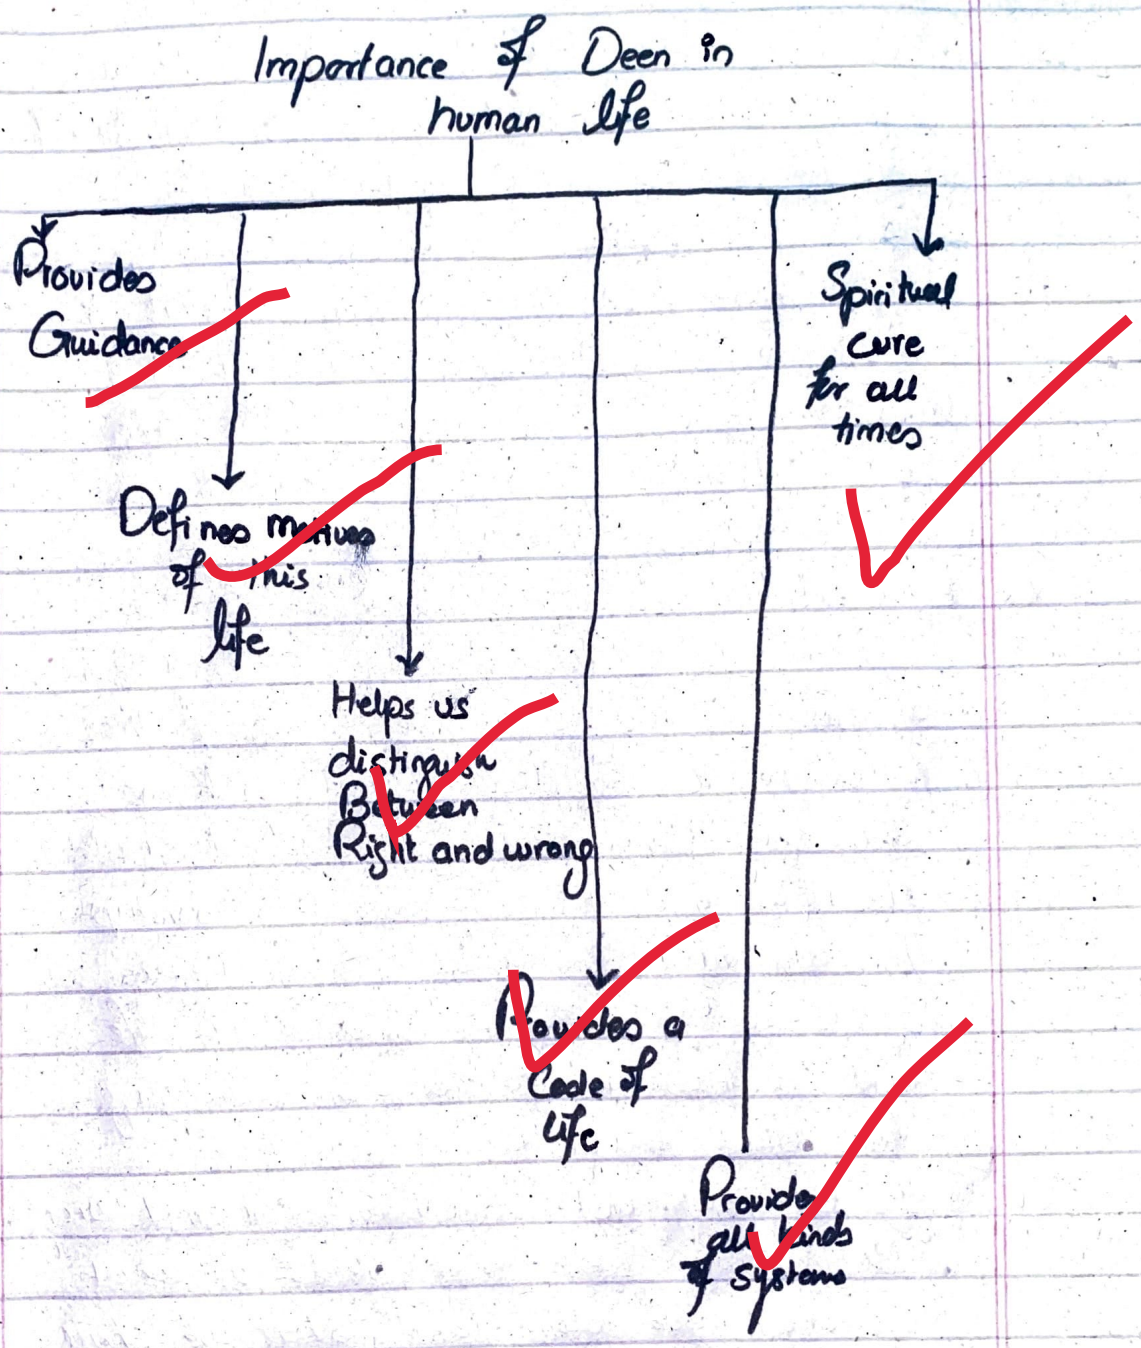 Importance of Deen in
human life
Provides
Guidance
Defines motives
of this
life
Helps us
distinguish
Between
Right and wrong
Provides a
Code of
life
Provides
all kinds
of systems
Spiritual
cure
for all
times